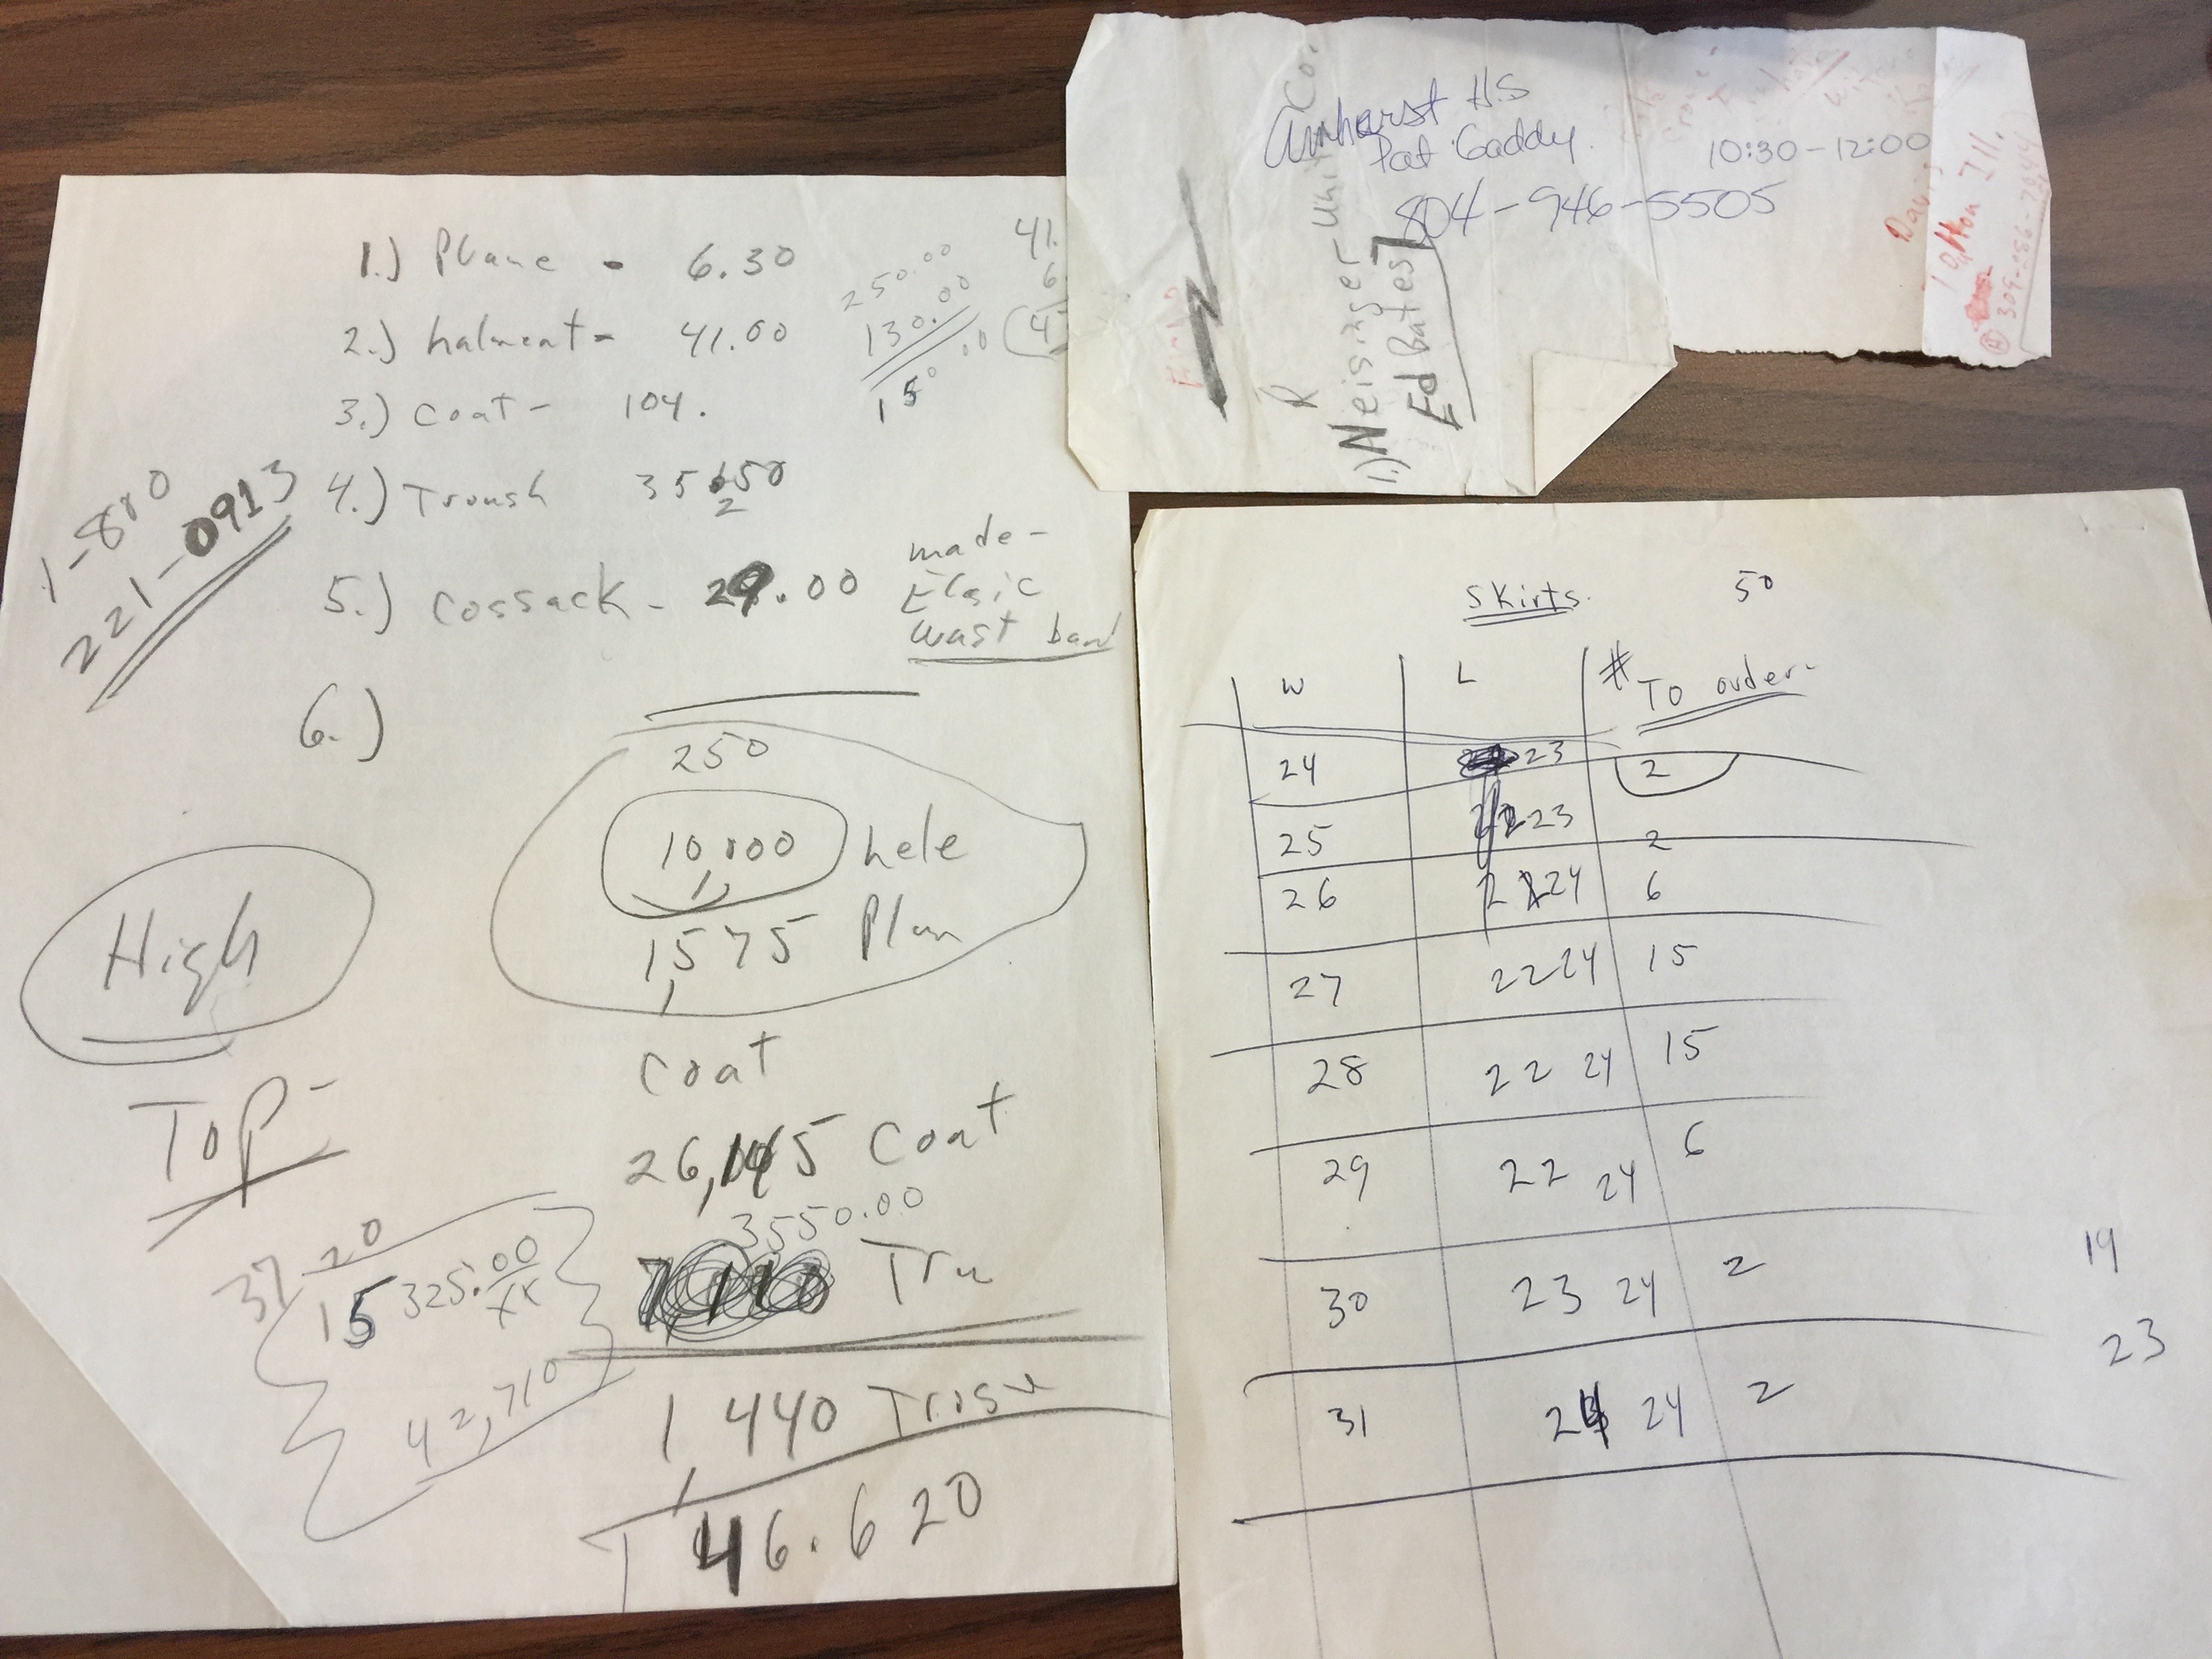 1.) Plane - 6.30
2.) halment - 41.00
3.) coat - 104.
4.) Troush 35 50
2
5.) Cossack - 29.00
made -
Elasic
wast band
6.)
250.00
130.00
.00
150
41.
6.
4
1-800
221-0913
250
10,000 hele
1,575 Plan
High
Top -
coat
26,145 Coat
3550.00
7,110 Tru
1,440 Trosu
T 46.620
37 20
15 325.00
42,710
Amherst H.S
Pat Gaddy. 10:30-12:00
804-946-5505
R
1.) Neisinger Unif Co.
Ed Bates]
Davis
Ill.
Skirts. 50
W L # To order -
24 23 2
25 22 23 2
26 22 24 6
27 22 24 15
28 22 24 15
29 22 24 6
30 23 24 2
31 24 24 2
19
23